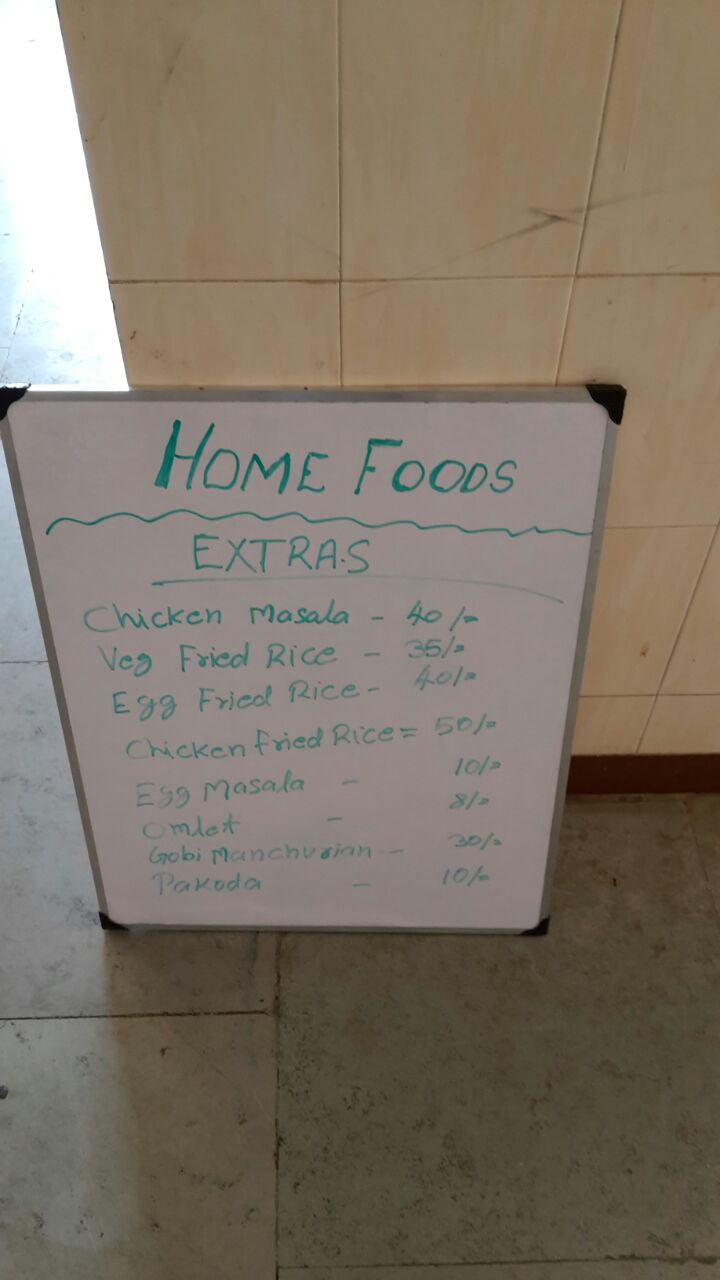 HOME FOODS
EXTRAS
Chicken Masala - 40/=
Veg Fried Rice - 35/=
Egg Fried Rice - 40/=
Chicken Fried Rice = 50/=
Egg Masala - 10/=
Omlet - 8/=
Gobi Manchurian - 30/=
Pakoda - 10/=